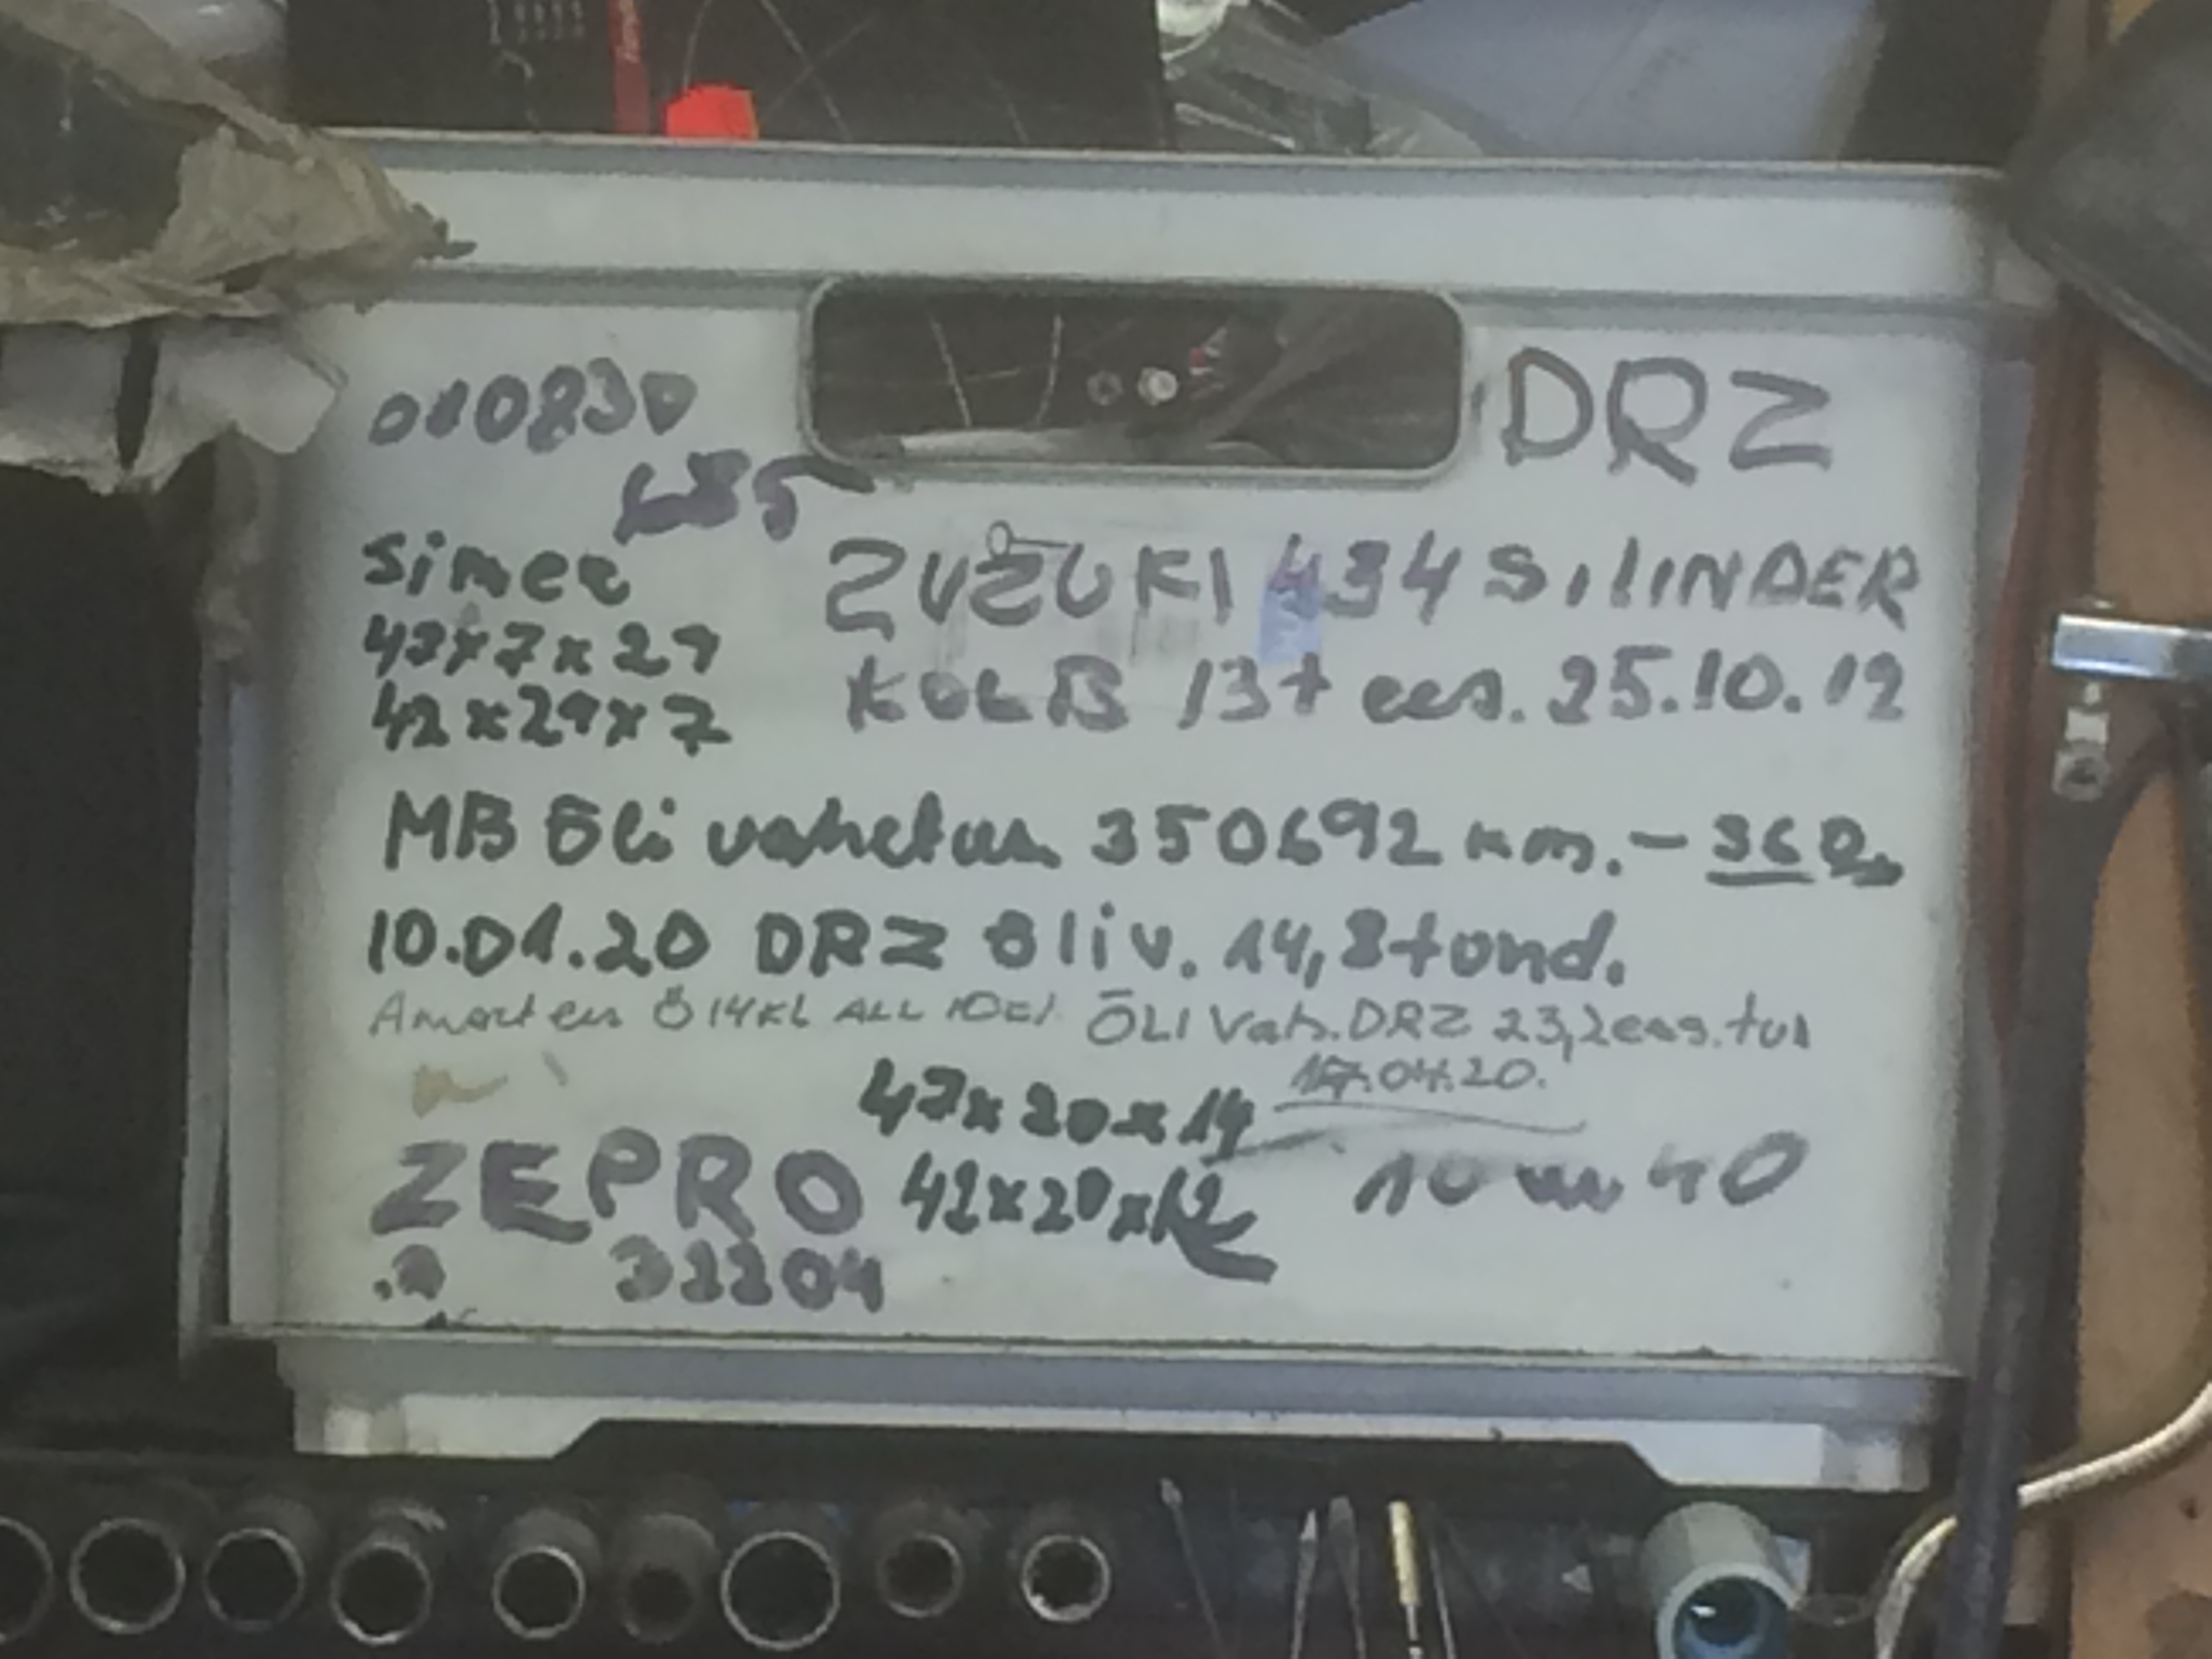 010830
DRZ
685
simer
ZUZUKI 434 SILINDER
47x7x29
42x29x7
KOLB 13t ees. 25.10.12
MB õli vahetus 350692 km. - 360
10.01.20 DRZ õliv. 14,8 tund.
Amort ees Ö 14KL ALL 10
ÕLI Vah. DRZ 23,2 eas. tus
17.04.20.
47x20x14
ZEPRO
42x20x12
10 w 40
32204